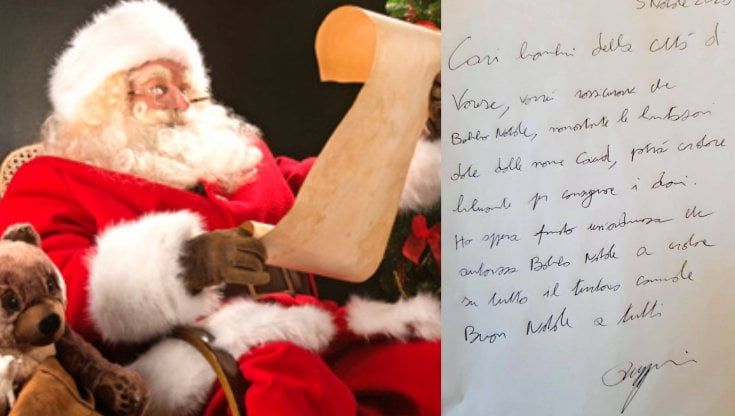 S Natale 2020
Cari bambini della città di
Varese, vorrei rassicurare che
Babbo Natale, nonostante le limitazioni
date dalle norme Covid, potrà circolare
liberamente per consegnare i doni.
Ho appena firmato un'ordinanza che
autorizza Babbo Natale a circolare
su tutto il territorio comunale
Buon Natale a tutti